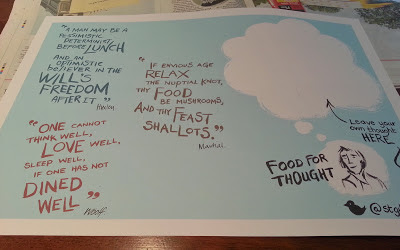 "A MAN MAY BE A
PESSIMISTIC
DETERMINIST
BEFORE LUNCH
AND AN
OPTIMISTIC
BELIEVER IN THE
WILL'S
FREEDOM
AFTER IT"
Huxley
"IF ENVIOUS AGE
RELAX
THE NUPTIAL KNOT,
THY FOOD
BE MUSHROOMS,
AND THY FEAST
SHALLOTS."
Martial
"ONE CANNOT
THINK WELL,
LOVE WELL,
SLEEP WELL,
IF ONE HAS NOT
DINED
WELL"
Woolf
Leave your
own thought
HERE
FOOD FOR
THOUGHT